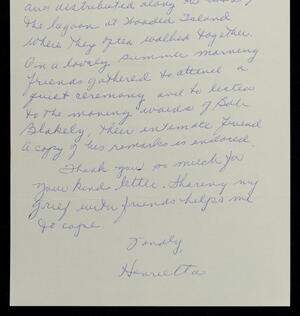 distributed along the
the lagoon at Wooded Island
where they often walked together.
On a lovely summer morning
friends gathered to attend a
quiet ceremony and to listen
to the moving words of Bob
Blakely, their intimate friend
A copy of his remarks is enclosed.
Thank you so much for
your kind letter. Sharing my
grief with friends helps me
to cope.
Fondly,
Henrietta